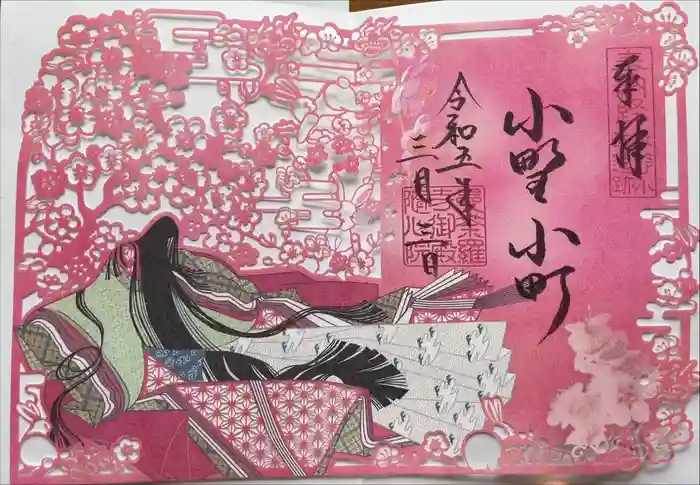 奉拝
小野小町
令和五年
三月三日